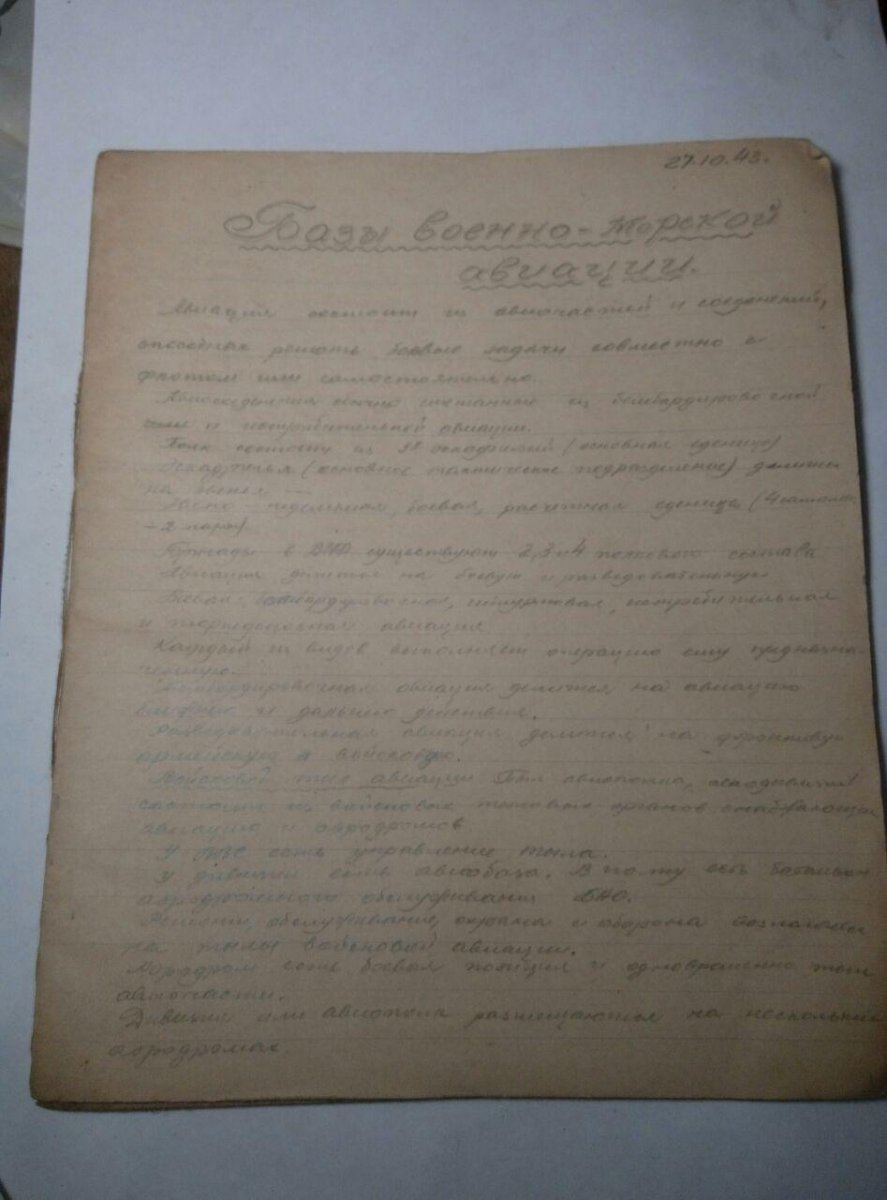 27.10.43.
Базы военно-морской
авиации.
Авиация состоит из авиачастей и соеденений,
способных решать боевые задачи совместно с
флотом или самостоятельно.
Авиасоеденения смешанные из бомбардировочной
и истребительной авиации.
Полк состоит из эскадрилий (основная еденица)
Эскадрилья (основное тактическое подразделение) делится
на звенья
боевая, расчетная еденица (4 самолета
- 2 пары)
Бригады в существуют 2, 3 и 4 полкового состава
Авиация делится на боевую и разведовательную
Боевая: бомбардировочная, штурмовая, истребительная
и торпедоносная авиация
Каждый из видов выполняет операцию ему предназна-
ченную.
Бомбардировочная авиация делится на авиацию
ближнего и дальнего действия.
Разведовательная авиация делится на фронтовую
армейскую и войсковую.
Войсковой тыл авиации авиаполка, эскадрильи
состоит из войсковых тыловых органов снабжающих
авиацию и аэродромов
У ВВС есть управление тыла.
У дивизии есть авиабаза. В полку есть баталион
аэродромного обслуживания БАО.
обслуживание, охрана и оборона возложены
на тылы войсковой авиации.
Аэродром есть боевая позиция и одновременно тыл
авиачасти.
Дивизия или авиаполк размещаются на нескольких
аэродромах.